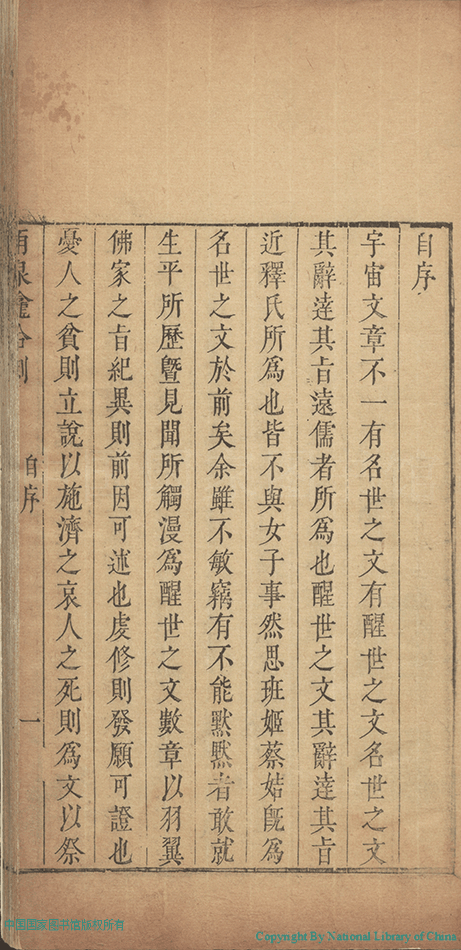 自序
宇宙文章不一有名世之文有醒世之文名世之文
其辭達其旨遠儒者所爲也醒世之文其辭達其旨
近釋氏所爲也皆不與女子事然思班姬蔡姞旣爲
名世之文於前矣余雖不敏竊有不能默默者敢就
生平所歷曁見聞所觸漫爲醒世之文數章以羽翼
佛家之旨紀異則前因可述也虔修則發願可證也
憂人之貧則立說以施濟之哀人之死則爲文以祭
自序
一
中国国家图书馆版权所有
Copyright By National Library of China